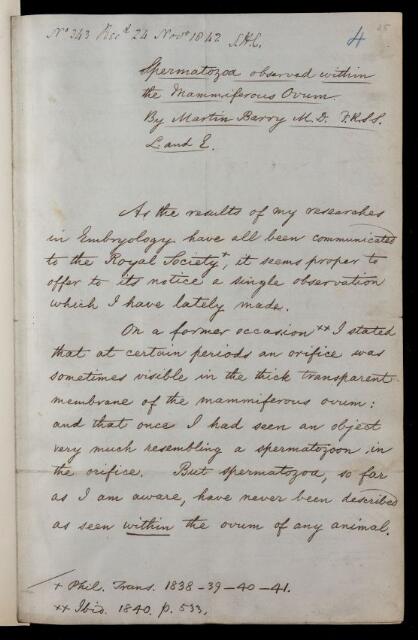 No 243 Recd 24 Novr 1842 S.H.C.
4
25
Spermatozoa observed within
the Mammiferous Ovum.
By Martin Barry M.D. F.R.S.S.
L. and E.
As the results of my researches
in Embryology have all been communicated
to the Royal Society+, it seems proper to
offer to its notice a single observation
which I have lately made.
On a former occasion ++ I stated
that at certain periods an orifice was
sometimes visible in the thick transparent
membrane of the mammiferous ovum:
and that once I had seen an object
very much resembling a spermatozoon, in
the orifice. But spermatozoa, so far
as I am aware, have never been described
as seen within the ovum of any animal.
+ Phil. Trans. 1838-39-40-41.
++ Ibid. 1840. p. 533.